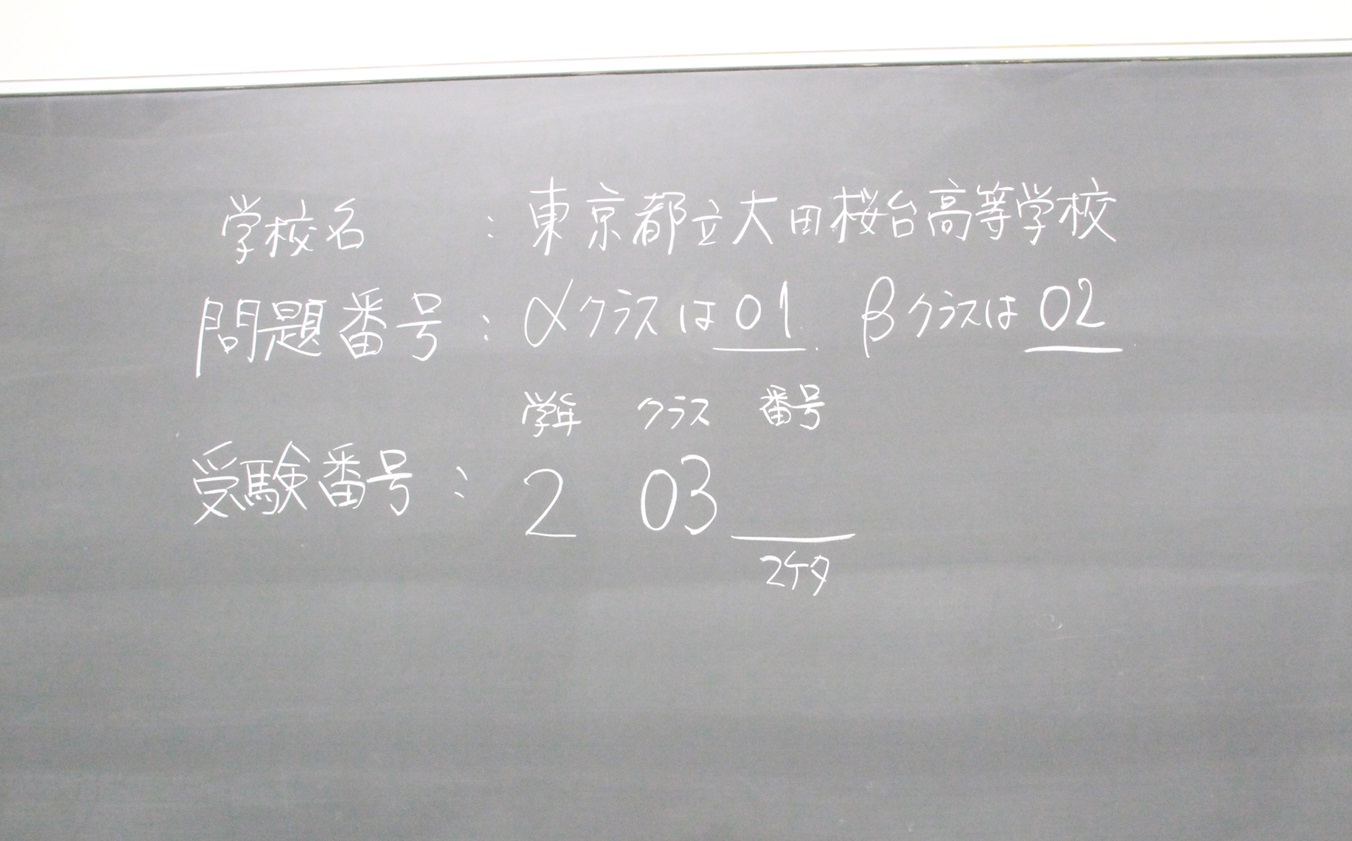 学校名 : 東京都立大田桜台高等学校
問題番号 : αクラスは 01. βクラスは 02
学年 クラス 番号
受験番号 : 2 03 __
2ケタ